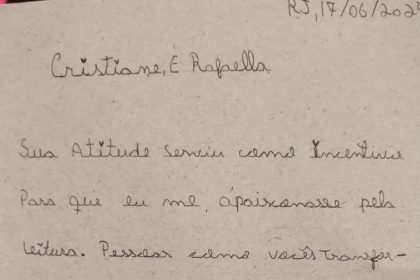 RJ, 17/06/202
Cristiane, E Rafaella
Sua Atitude serviu como Incentivo
Para que eu me, apaixonasse pela
leitura. Pessoas como vocês transfor-